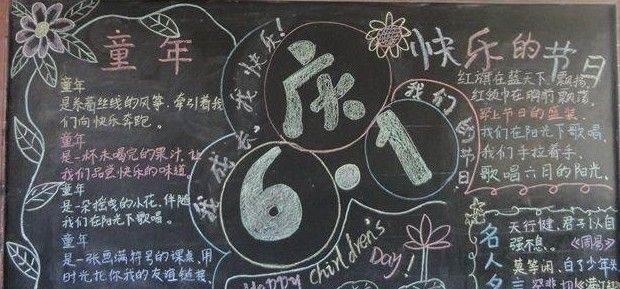 童年
童年
是系着丝线的风筝，牵引着我
们向快乐奔跑。
童年
是一杯未喝完的果汁，让
我们品尝快乐的味道
童年
是一朵摇曳的小花，伴随
我们在阳光下歌唱。
童年
是一张画满符号的课桌，用
时光花你我的友谊链接
我成长，我快乐！
庆
6·1
我们的节日
Happy Children's
Day!
快乐的节日
红旗在蓝天下飘扬，
红领巾在胸前飘荡，
穿上节日的盛装，
我们在阳光下歌唱，
我们手拉着手，
歌唱六月的阳光。
名人名
天行健，君子以自
强不息。《周易》
莫等闲，白了少年头
空悲切《满江红